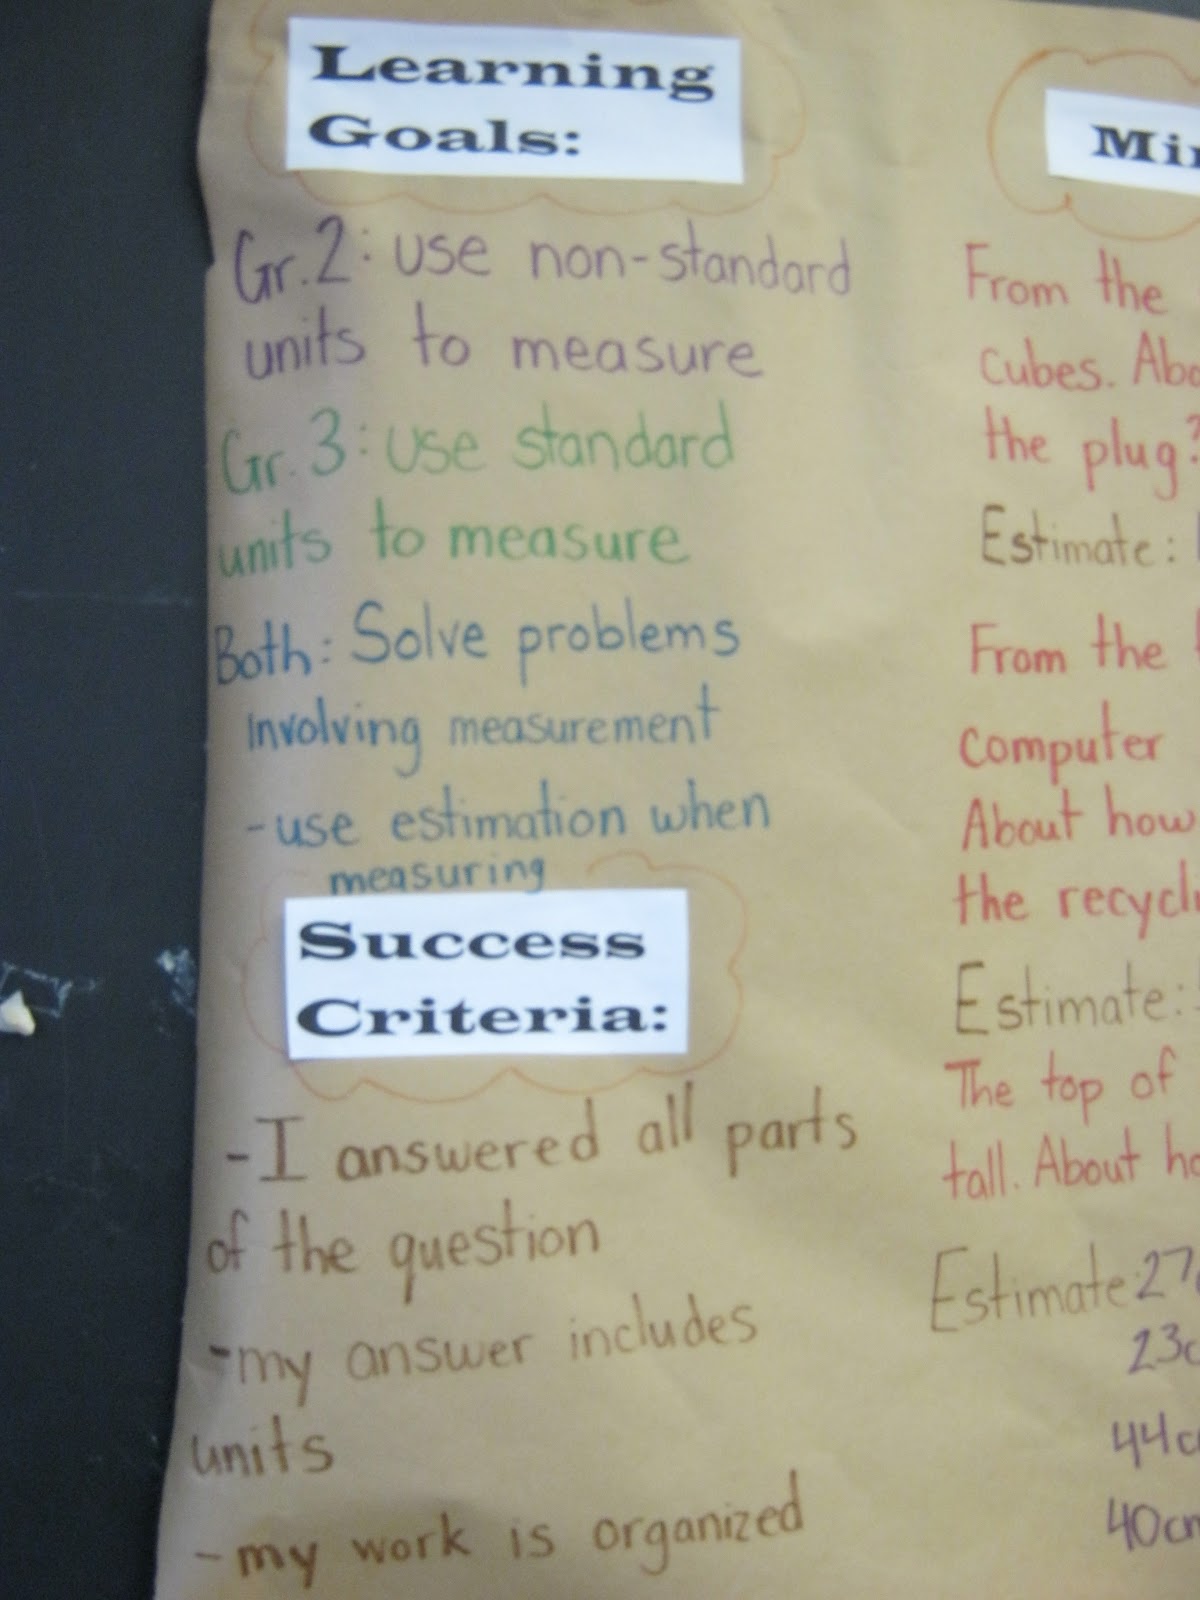 Learning
Goals:
Gr. 2: use non-standard
units to measure
Gr. 3: use standard
units to measure
Both: Solve problems
involving measurement
- use estimation when
measuring
Success
Criteria:
- I answered all parts
of the question
- my answer includes
units
- my work is organized
From the
cubes.
the plug?
Estimate:
From the
computer
About how
the
Estimate:
The top of
tall. About
Estimate: 27
23c
44c
40cm